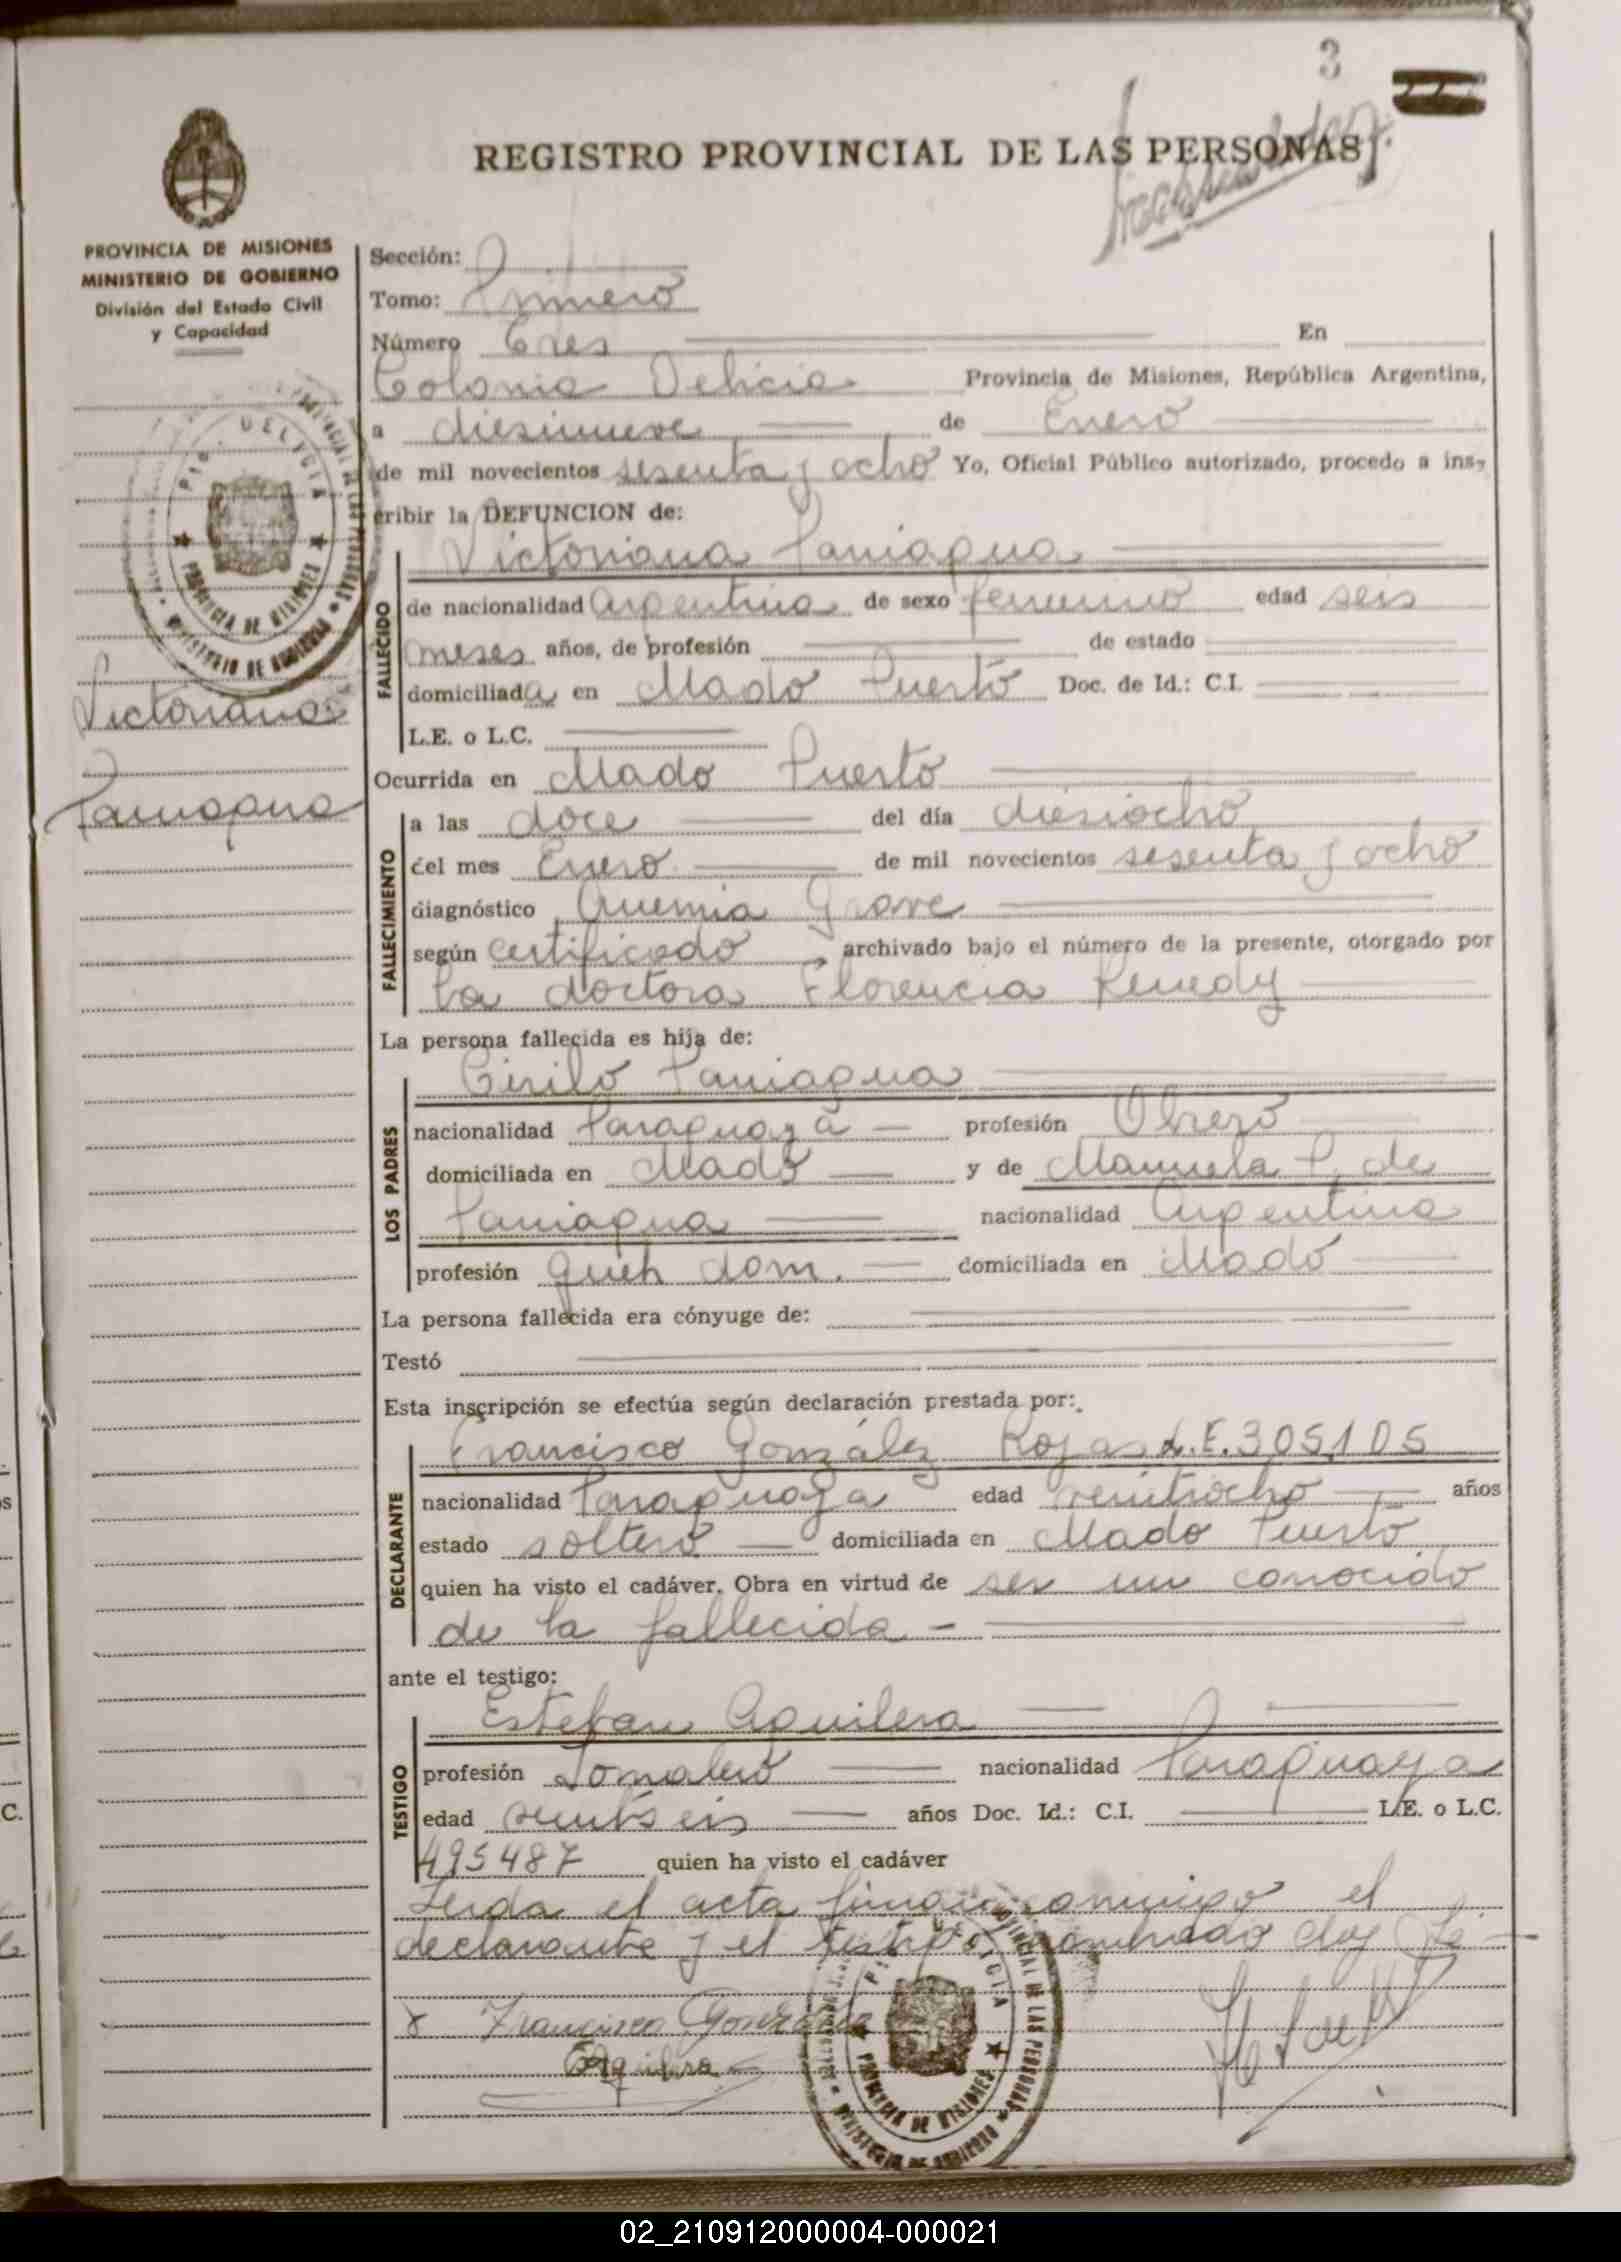 3
REGISTRO PROVINCIAL DE LAS PERSONAS
PROVINCIA DE MISIONES
MINISTERIO DE GOBIERNO
División del Estado Civil
y Capacidad
Sección:
Tomo: Primero
Número Tres En
Colonia Delicia Provincia de Misiones, República Argentina,
a diesinueve de Enero
de mil novecientos sesenta y ocho Yo, Oficial Público autorizado, procedo a ins-
cribir la DEFUNCION de:
Victoriana Paniagua
FALLECIDO
de nacionalidad Argentina de sexo femenino edad seis
meses años, de profesión de estado
domiciliada en Mado Puerto Doc. de Id.: C.I.
L.E. o L.C.
Victoriana
Paniagua
Ocurrida en Mado Puerto
FALLECIMIENTO
a las doce del día diesiocho
del mes Enero de mil novecientos sesenta y ocho
diagnóstico Anemia Grave
según certificado archivado bajo el número de la presente, otorgado por
la doctora Florencia Kenedy
La persona fallecida es hija de:
LOS PADRES
Cirilo Paniagua
nacionalidad Paraguaya profesión Obrero
domiciliada en Mado y de Manuela P. de
Paniagua nacionalidad Argentina
profesión queh dom. domiciliada en Mado
La persona fallecida era cónyuge de:
Testó
Esta inscripción se efectúa según declaración prestada por:
DECLARANTE
Francisco González Rojas L.E. 305105
nacionalidad Paraguaya edad veintiocho años
estado soltero domiciliada en Mado Puerto
quien ha visto el cadáver. Obra en virtud de ser un conocido
de la fallecida -
ante el testigo:
TESTIGO
Esteban Aguilera
profesión Jornalero nacionalidad Paraguaya
edad años Doc. Id.: C.I. L.E. o L.C.
495487 quien ha visto el cadáver
Leida el acta firman conmigo el
declarante y el testigo nombrado doy fé
Francisco Gonzalez
Aguilera
PROVINCIA DE MISIONES
MINISTERIO DE GOBIERNO
02_210912000004-000021